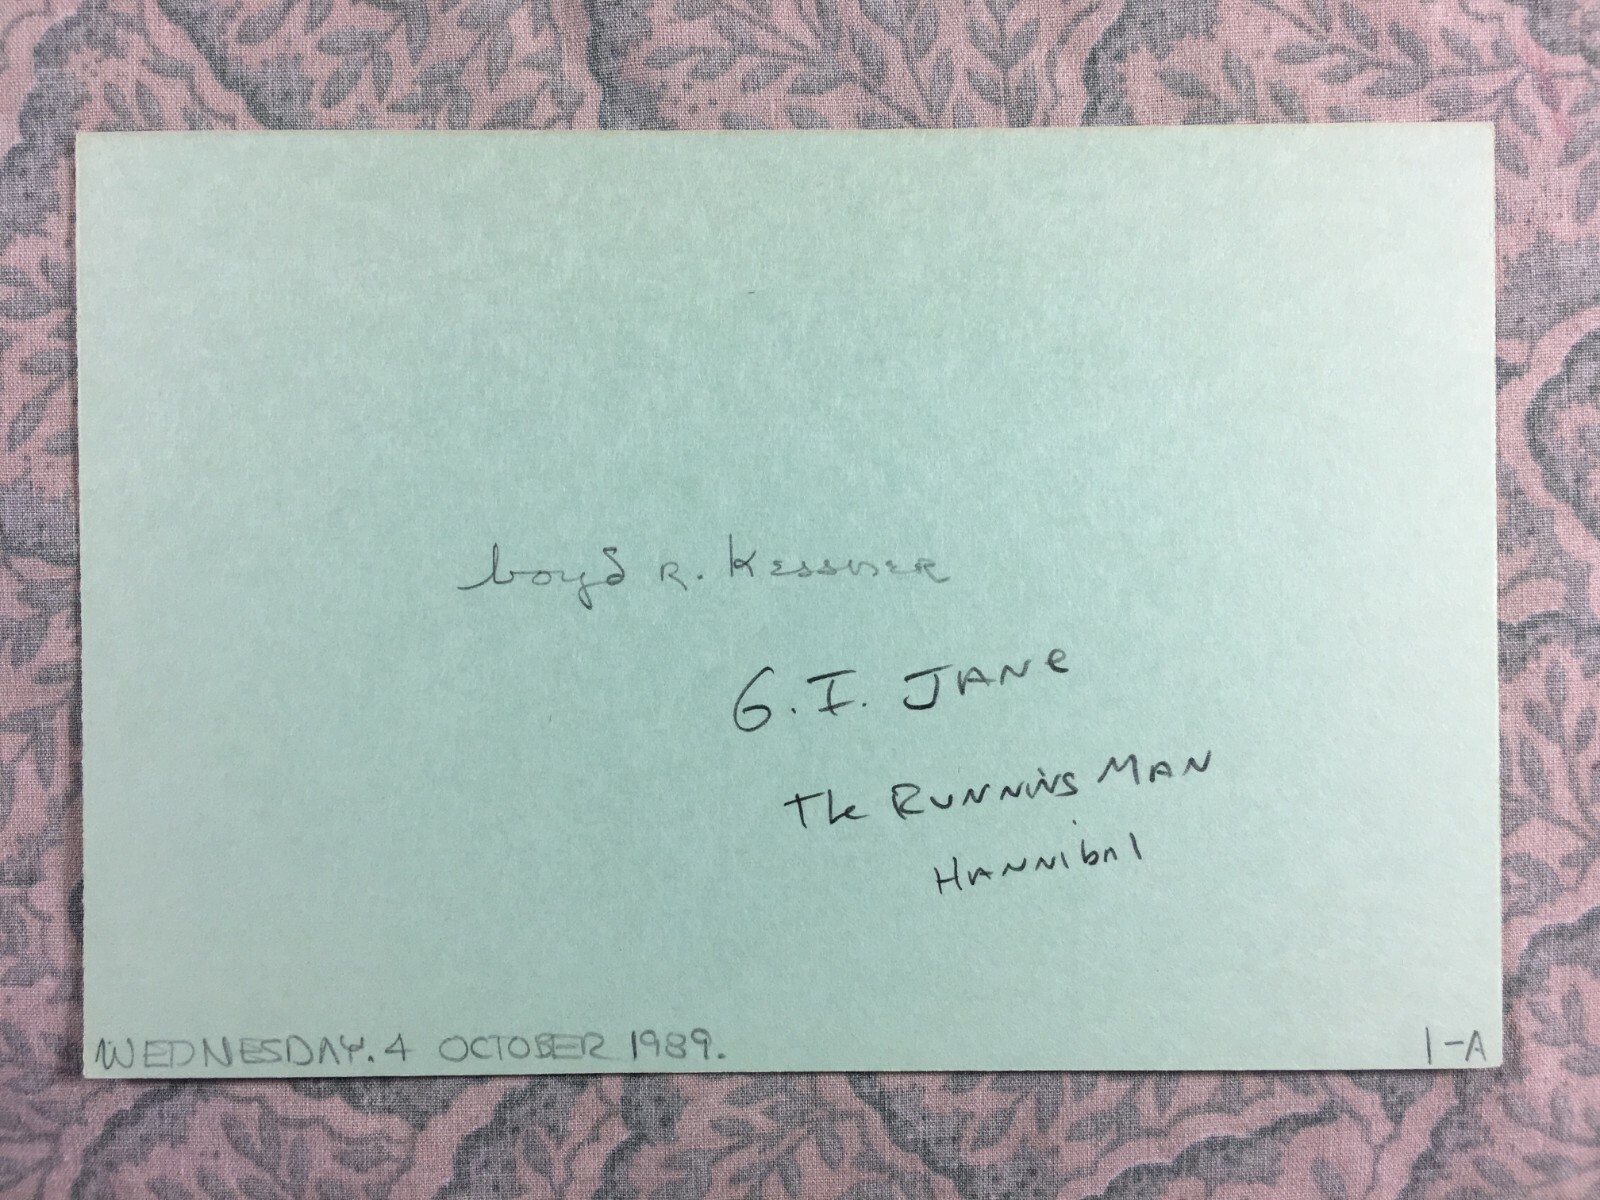 boyd R. Kessner
G.I. JANe
The RUNNiNG MAN
HANNibAl
WEDNESDAY. 4 OCTOBER 1989.
1-A